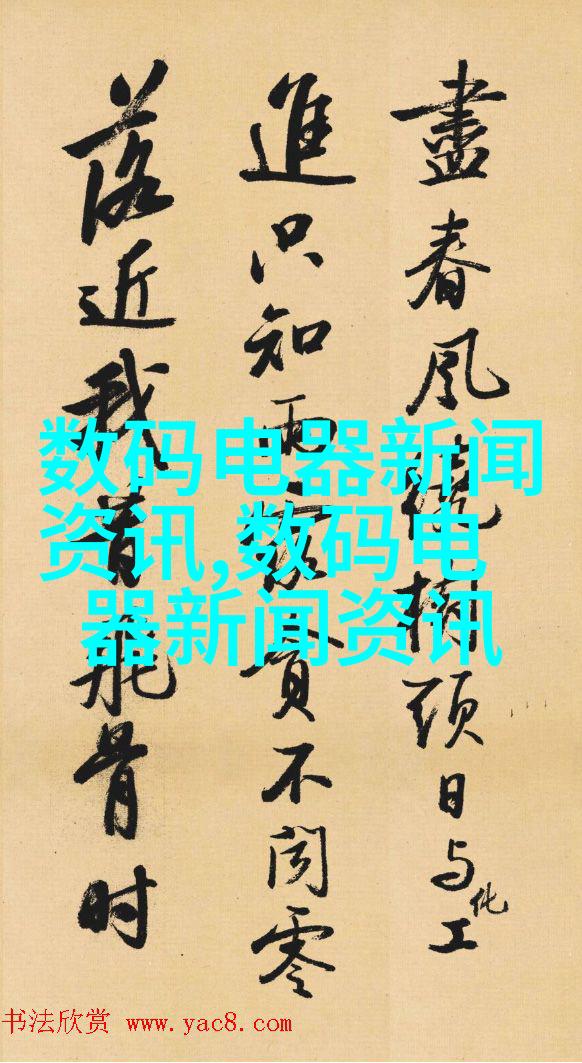 盡春風繞樹頭日与化工
進只知雨露貪不聞零
落近我昔飛骨时
数码电器新闻
资讯,数码电
器新闻资讯
书法欣赏 www.yac8.com